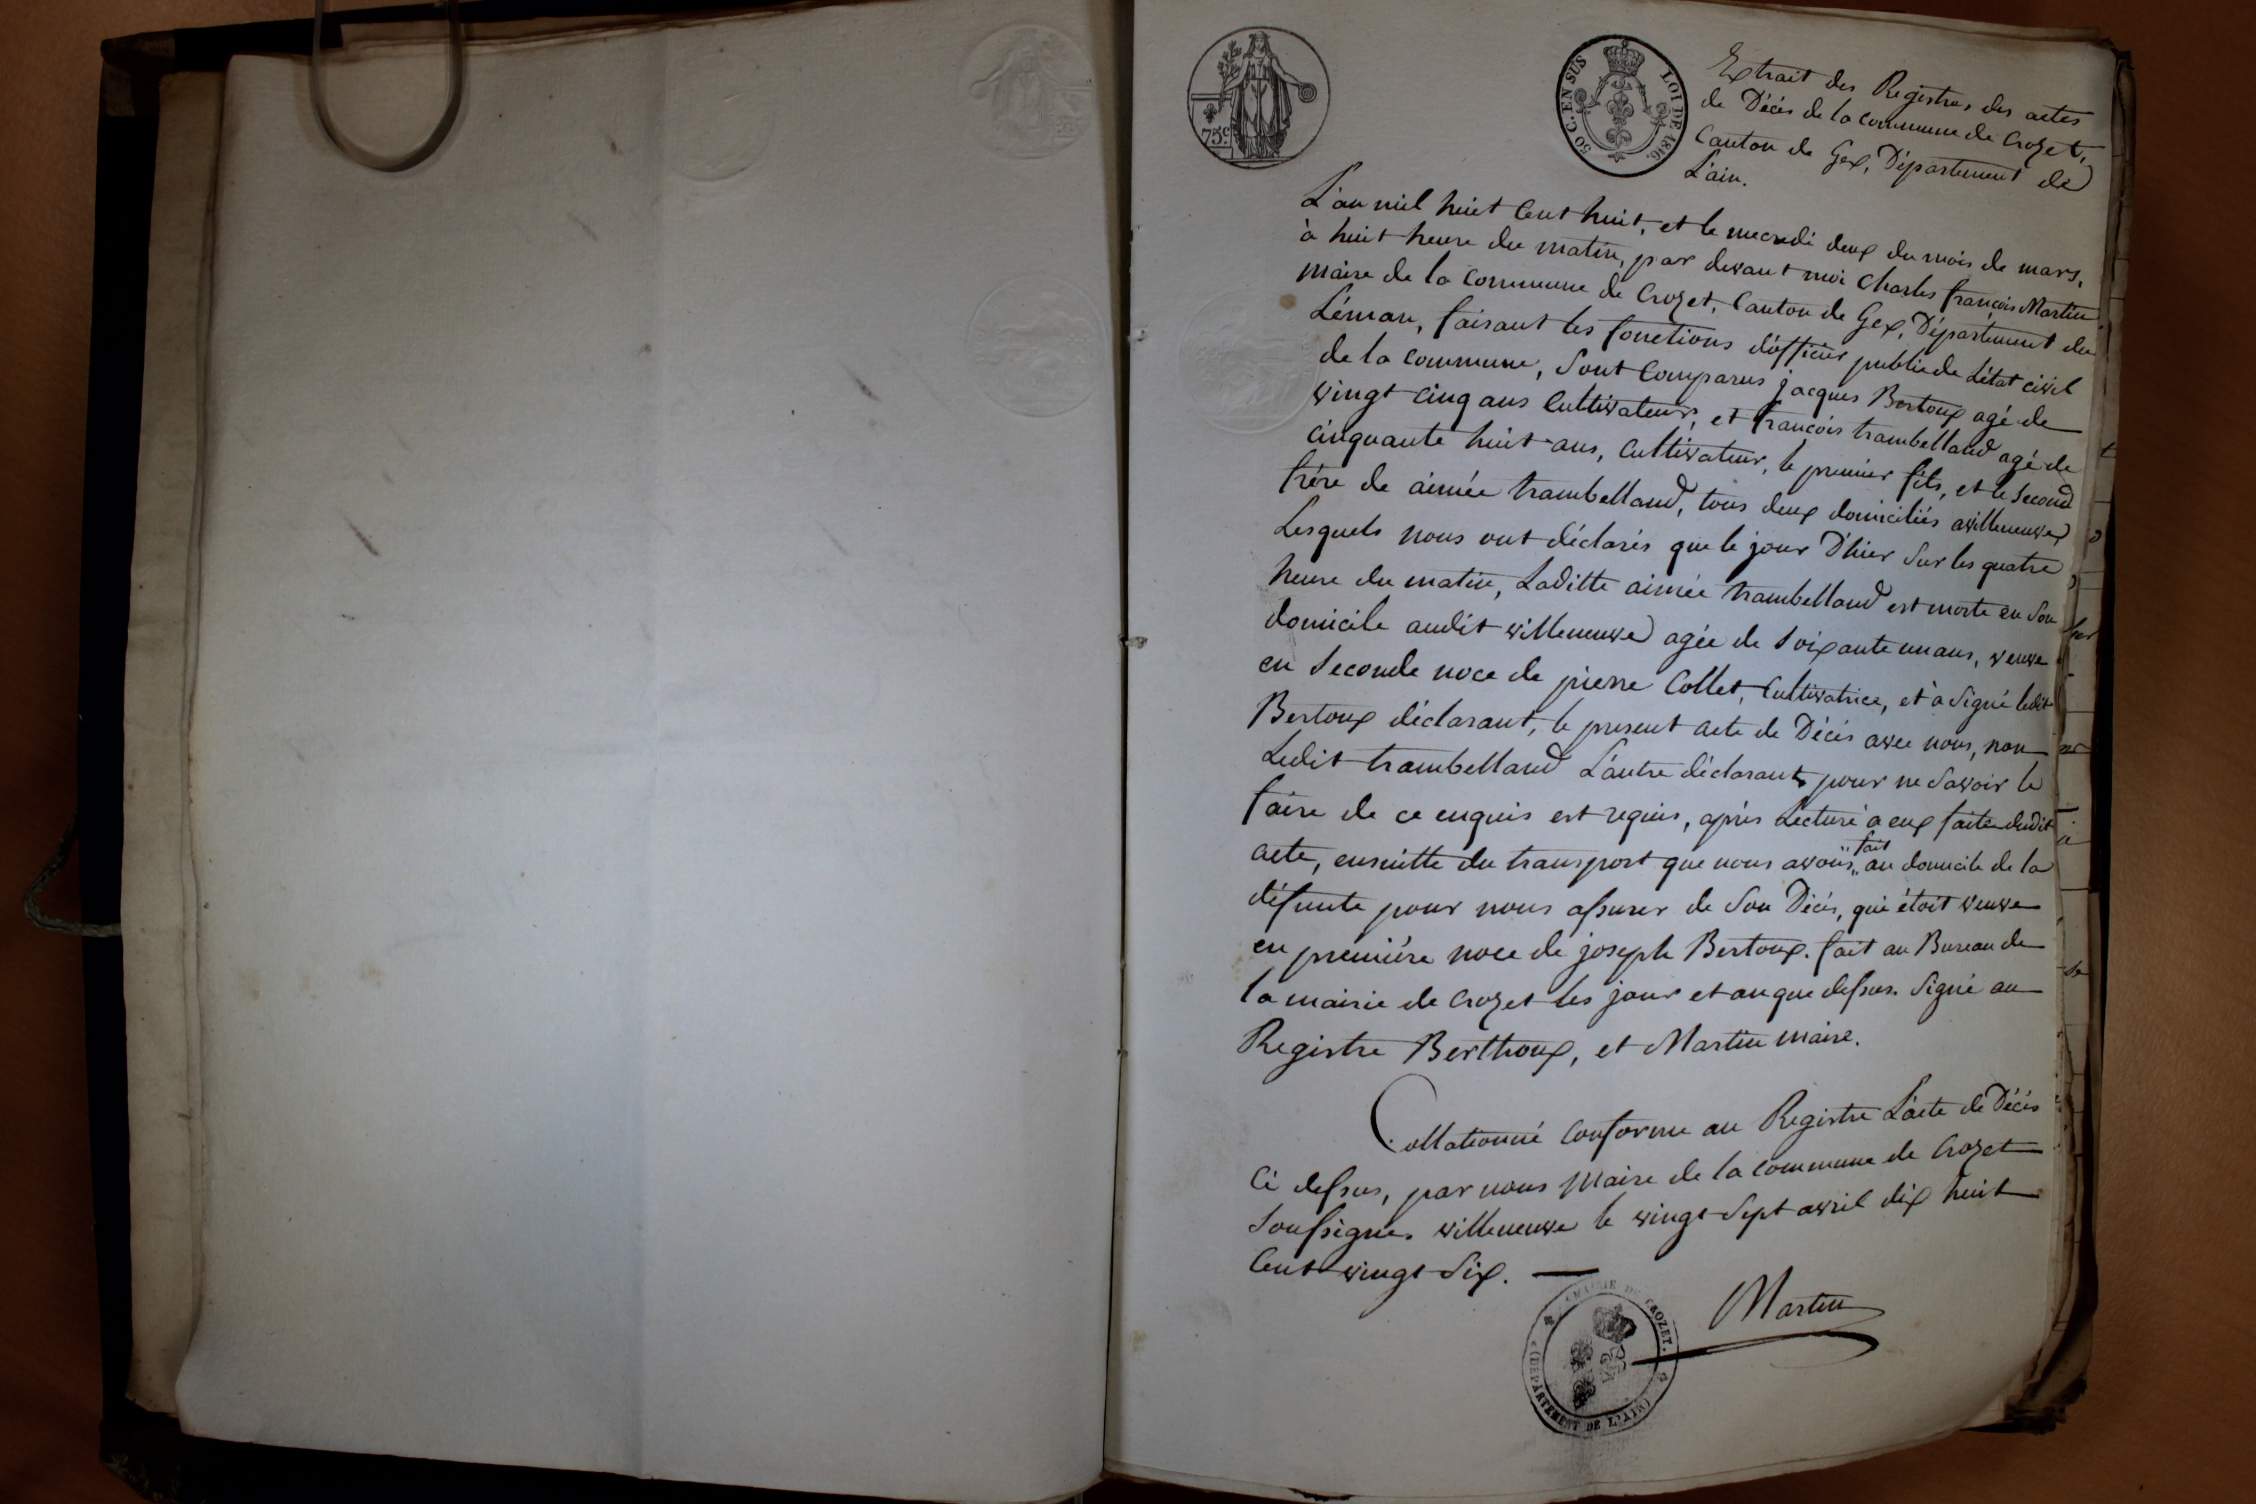 75c.
50 C. EN SUS LOI DE 1816.
Extrait des Registres des actes
de Décès de la commune de Crozet,
Canton de Gex, Département de
L'ain.
L'an mil huit Cent huit, et le mecredi deux du mois de mars,
à huit heure du matin, par devant moi Charles françois Martin
maire de la Commune de Crozet, Canton de Gex, Département du
Léman, faisant les fonctions d'officier public de L'état civil
de la commune, Sont Comparus jacques Bertoux agé de
vingt cinq ans Cultivateur, et francois trambelland agé de
cinquante huit ans, Cultivateur, le premier fils, et le Second
frère de aimée trambelland, tous deux domiciliés avilleneuve
Lesquels nous ont déclarés que le jour D'hier Sur les quatre
heure du matin, Laditte aimée trambelland est morte en Son
domicile audit villeneuve agée de Soixante un ans, veuve
en Seconde noce de pierre Collet, Cultivatrice, et à Signé ledit
Bertoux déclarant, le present acte de Décès avec nous, non
Ledit trambelland L'autre déclarant, pour ne Savoir le
faire de ce enquis est requis, après Lecture à eux faite dudit
acte, ensuitte du transport que nous avons fait au domicile de la
défunte pour nous assurer de Son Décès, qui étoit veuve
en première noce de joseph Bertoux. fait au Bureau de
la mairie de Crozet les jour et an que dessus. Signé au
Registre Berthoux, et Martin maire.
Collationné Conforme au Registre L'acte de Décès
Ci dessus, par nous Maire de la Commune de Crozet
Soussigné. villeneuve le vingt Sept avril dix huit
Cent vingt Six.
Martin
MAIRIE DE CROZET.
(DÉPARTEMENT DE L'AIN)